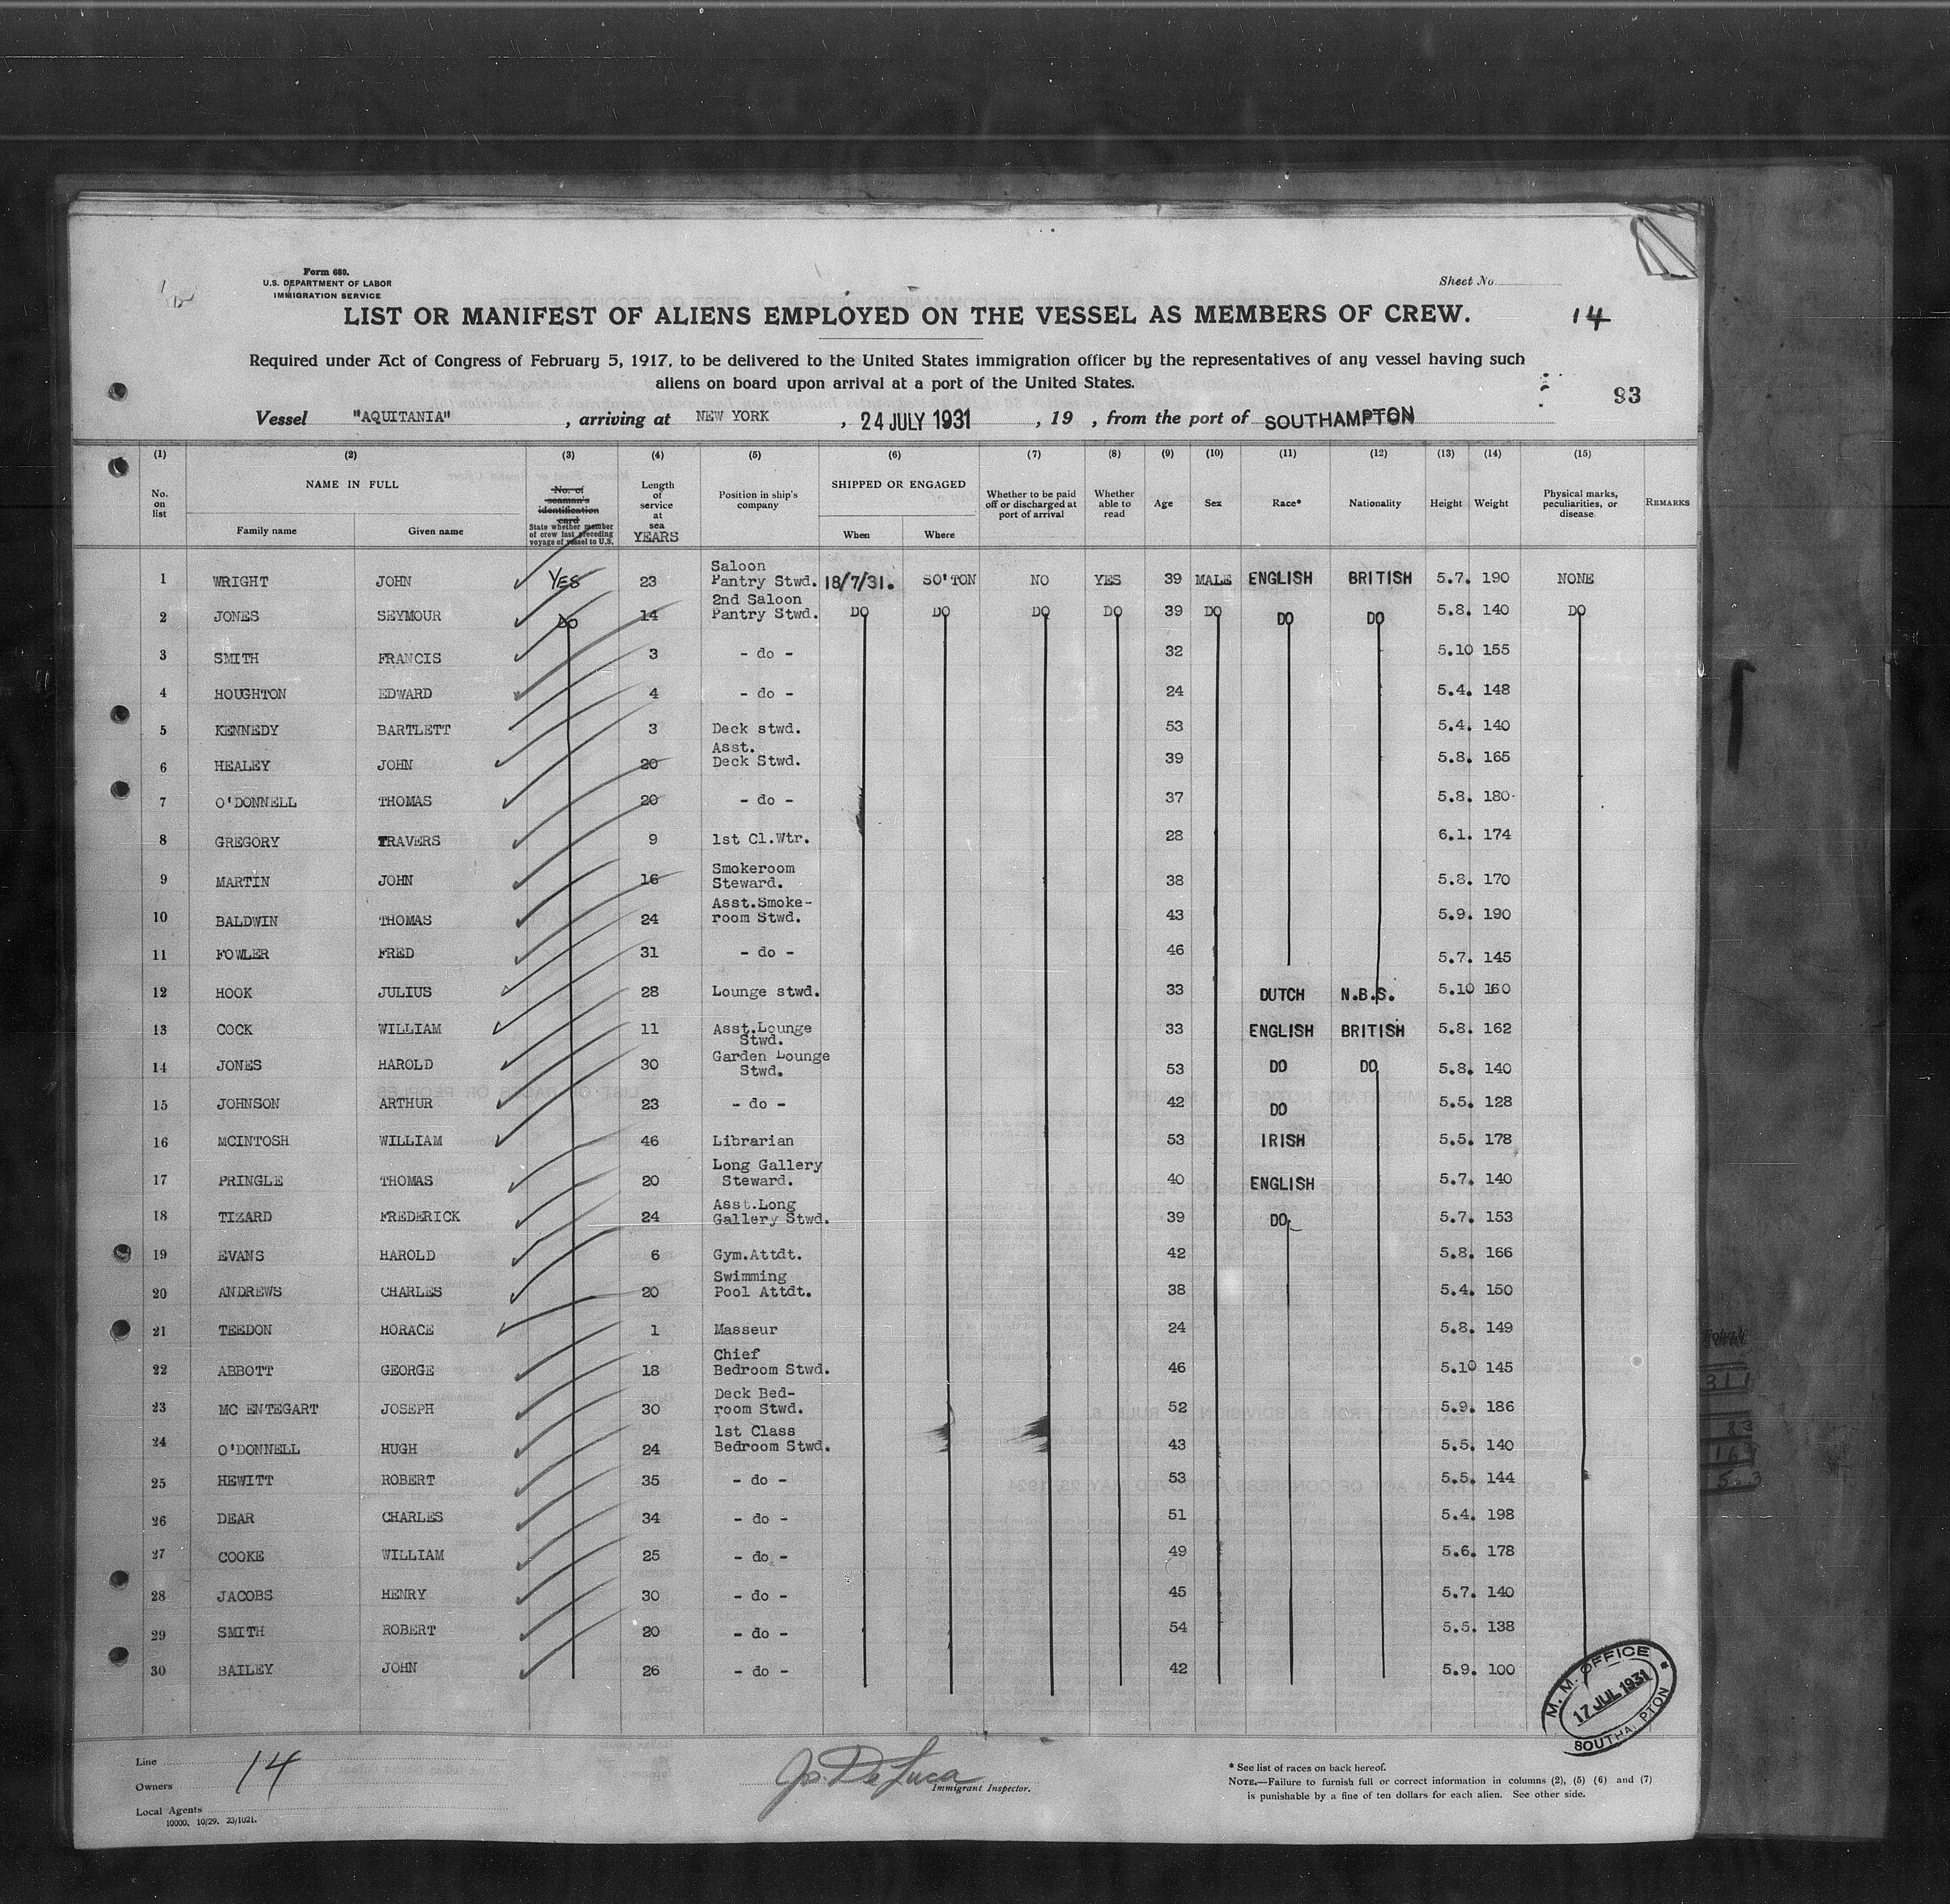 Form 680.
U.S. DEPARTMENT OF LABOR
IMMIGRATION SERVICE
Sheet No.
LIST OR MANIFEST OF ALIENS EMPLOYED ON THE VESSEL AS MEMBERS OF CREW.
14
Required under Act of Congress of February 5, 1917, to be delivered to the United States immigration officer by the representatives of any vessel having such
aliens on board upon arrival at a port of the United States.
93
Vessel "AQUITANIA", arriving at NEW YORK, 24 JULY 1931, 19 , from the port of SOUTHAMPTON
(1) (2) (3) (4) (5) (6) (7) (8) (9) (10) (11) (12) (13) (14) (15)
No. on list
NAME IN FULL
Family name Given name
No. of seaman's identification card
State whether member of crew last preceding voyage of vessel to U.S.
Length of service at sea YEARS
Position in ship's company
SHIPPED OR ENGAGED
When Where
Whether to be paid off or discharged at port of arrival
Whether able to read
Age Sex Race* Nationality Height Weight
Physical marks, peculiarities, or disease.
REMARKS
1 WRIGHT JOHN YES 23 Saloon Pantry Stwd. 18/7/31. SO'TON NO YES 39 MALE ENGLISH BRITISH 5.7. 190 NONE
2 JONES SEYMOUR DO 14 2nd Saloon Pantry Stwd. DO DO DO DO 39 DO DO DO 5.8. 140 DO
3 SMITH FRANCIS 3 - do - 32 5.10 155
4 HOUGHTON EDWARD 4 - do - 24 5.4. 148
5 KENNEDY BARTLETT 3 Deck stwd. 53 5.4. 140
6 HEALEY JOHN 20 Asst. Deck Stwd. 39 5.8. 165
7 O'DONNELL THOMAS 20 - do - 37 5.8. 180
8 GREGORY TRAVERS 9 1st Cl.Wtr. 28 6.1. 174
9 MARTIN JOHN 16 Smokeroom Steward. 38 5.8. 170
10 BALDWIN THOMAS 24 Asst.Smoke-room Stwd. 43 5.9. 190
11 FOWLER FRED 31 - do - 46 5.7. 145
12 HOOK JULIUS 28 Lounge stwd. 33 DUTCH N.B.S. 5.10 160
13 COCK WILLIAM 11 Asst.Lounge Stwd. 33 ENGLISH BRITISH 5.8. 162
14 JONES HAROLD 30 Garden Lounge Stwd. 53 DO DO 5.8. 140
15 JOHNSON ARTHUR 23 - do - 42 DO 5.5. 128
16 MCINTOSH WILLIAM 46 Librarian 53 IRISH 5.5. 178
17 PRINGLE THOMAS 20 Long Gallery Steward. 40 ENGLISH 5.7. 140
18 TIZARD FREDERICK 24 Asst.Long Gallery Stwd. 39 DO 5.7. 153
19 EVANS HAROLD 6 Gym.Attdt. 42 5.8. 166
20 ANDREWS CHARLES 20 Swimming Pool Attdt. 38 5.4. 150
21 TEEDON HORACE 1 Masseur 24 5.8. 149
22 ABBOTT GEORGE 18 Chief Bedroom Stwd. 46 5.10 145
23 MC ENTEGART JOSEPH 30 Deck Bed-room Stwd. 52 5.9. 186
24 O'DONNELL HUGH 24 1st Class Bedroom Stwd. 43 5.5. 140
25 HEWITT ROBERT 35 - do - 53 5.5. 144
26 DEAR CHARLES 34 - do - 51 5.4. 198
27 COOKE WILLIAM 25 - do - 49 5.6. 178
28 JACOBS HENRY 30 - do - 45 5.7. 140
29 SMITH ROBERT 20 - do - 54 5.5. 138
30 BAILEY JOHN 26 - do - 42 5.9. 100
M. M. OFFICE
17 JUL 1931
SOUTHA PTON
Line
Owners 14
Local Agents
10000. 10/29. 23/1021.
Jo. De Luca
Immigrant Inspector.
* See list of races on back hereof.
NOTE.—Failure to furnish full or correct information in columns (2), (5) (6) and (7)
is punishable by a fine of ten dollars for each alien. See other side.